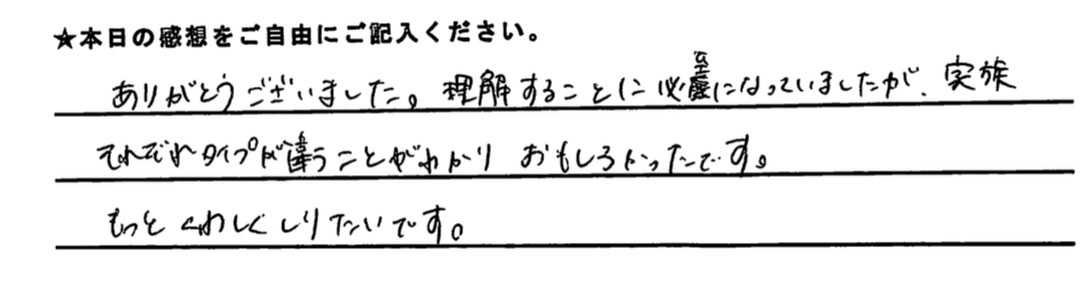 ★本日の感想をご自由にご記入ください。
ありがとうございました。理解することに必死になっていましたが、家族
それぞれタイプが違うことがわかり おもしろかったです。
もっとくわしくしりたいです。